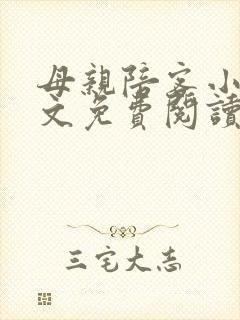 母親陪客小
文免費閱讀
三宅大志